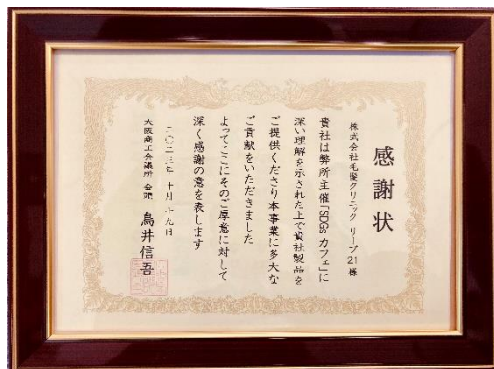 感謝状
株式会社毛髪クリニック リーブ21 様
貴社は弊所主催「SDGs カフェ」に
深い理解を示された上で貴社製品を
ご提供くださり本事業に多大な
ご貢献をいただきました
よってここにそのご厚意に対して
深く感謝の意を表します
二〇二三年 十月 十九日
大阪商工会議所 会頭 鳥井信吾